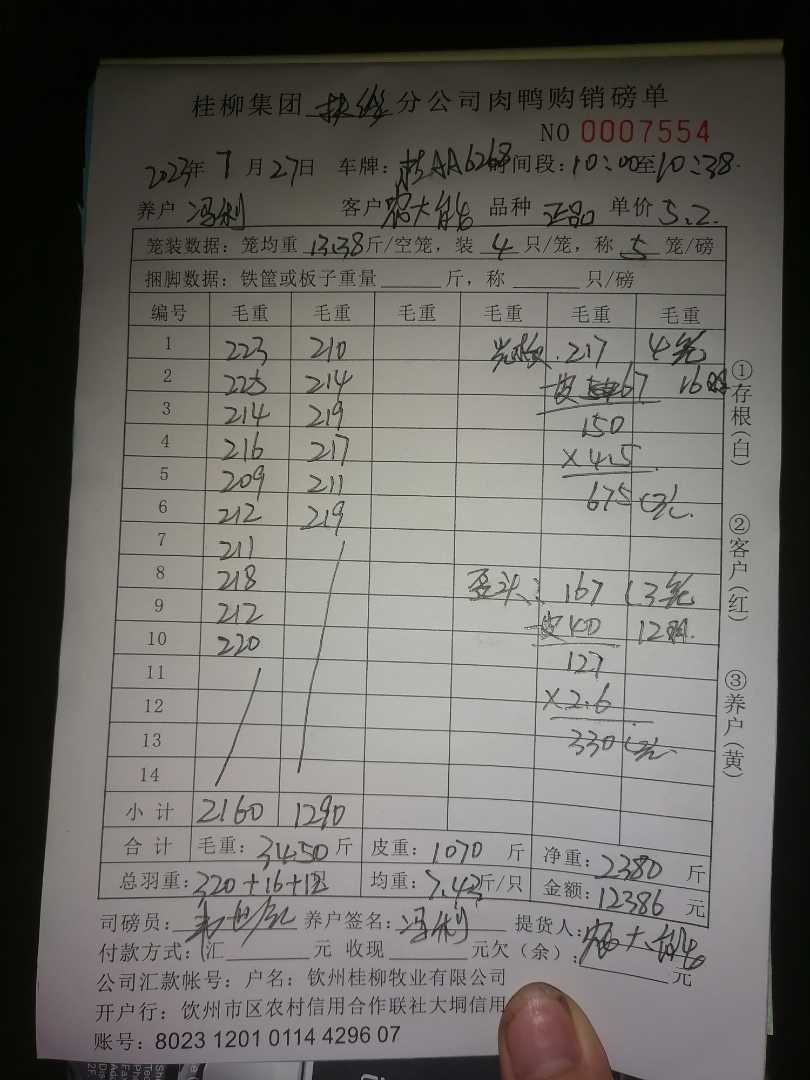 桂柳集团 分公司肉鸭购销磅单
NO 0007554
2023年 7月27日 车牌: AA6268 时间段:10:00至10:38.
养户 冯利 客户 农大能 品种 正品 单价 5.2.
笼装数据:笼均重 13.38斤/空笼,装 4 只/笼,称 5 笼/磅
捆脚数据:铁筐或板子重量 斤,称 只/磅
编号 毛重 毛重 毛重 毛重 毛重 毛重
1 223 210 217 4笼
2 225 214 -皮 67 16
3 214 219 150
4 216 217 ×4.5
5 209 211 675
6 212 219
7 211
8 218 歪头: 167 (3笼
9 212 -皮40 12
10 220 127
11 ×2.6
12
13 330
14
小计 2160 1290
合计 毛重:3450斤 皮重:1070 斤 净重:2380 斤
总羽重:320+16+12 均重:7.43斤/只 金额:12386 元
司磅员: 养户签名:冯利 提货人:农大能
付款方式:汇 元 收现 元欠(余): 元
公司汇款帐号:户名:钦州桂柳牧业有限公司
开户行:钦州市区农村信用合作联社大垌信用
账号:8023 1201 0114 4296 07
①存根(白)
②客户(红)
③养户(黄)